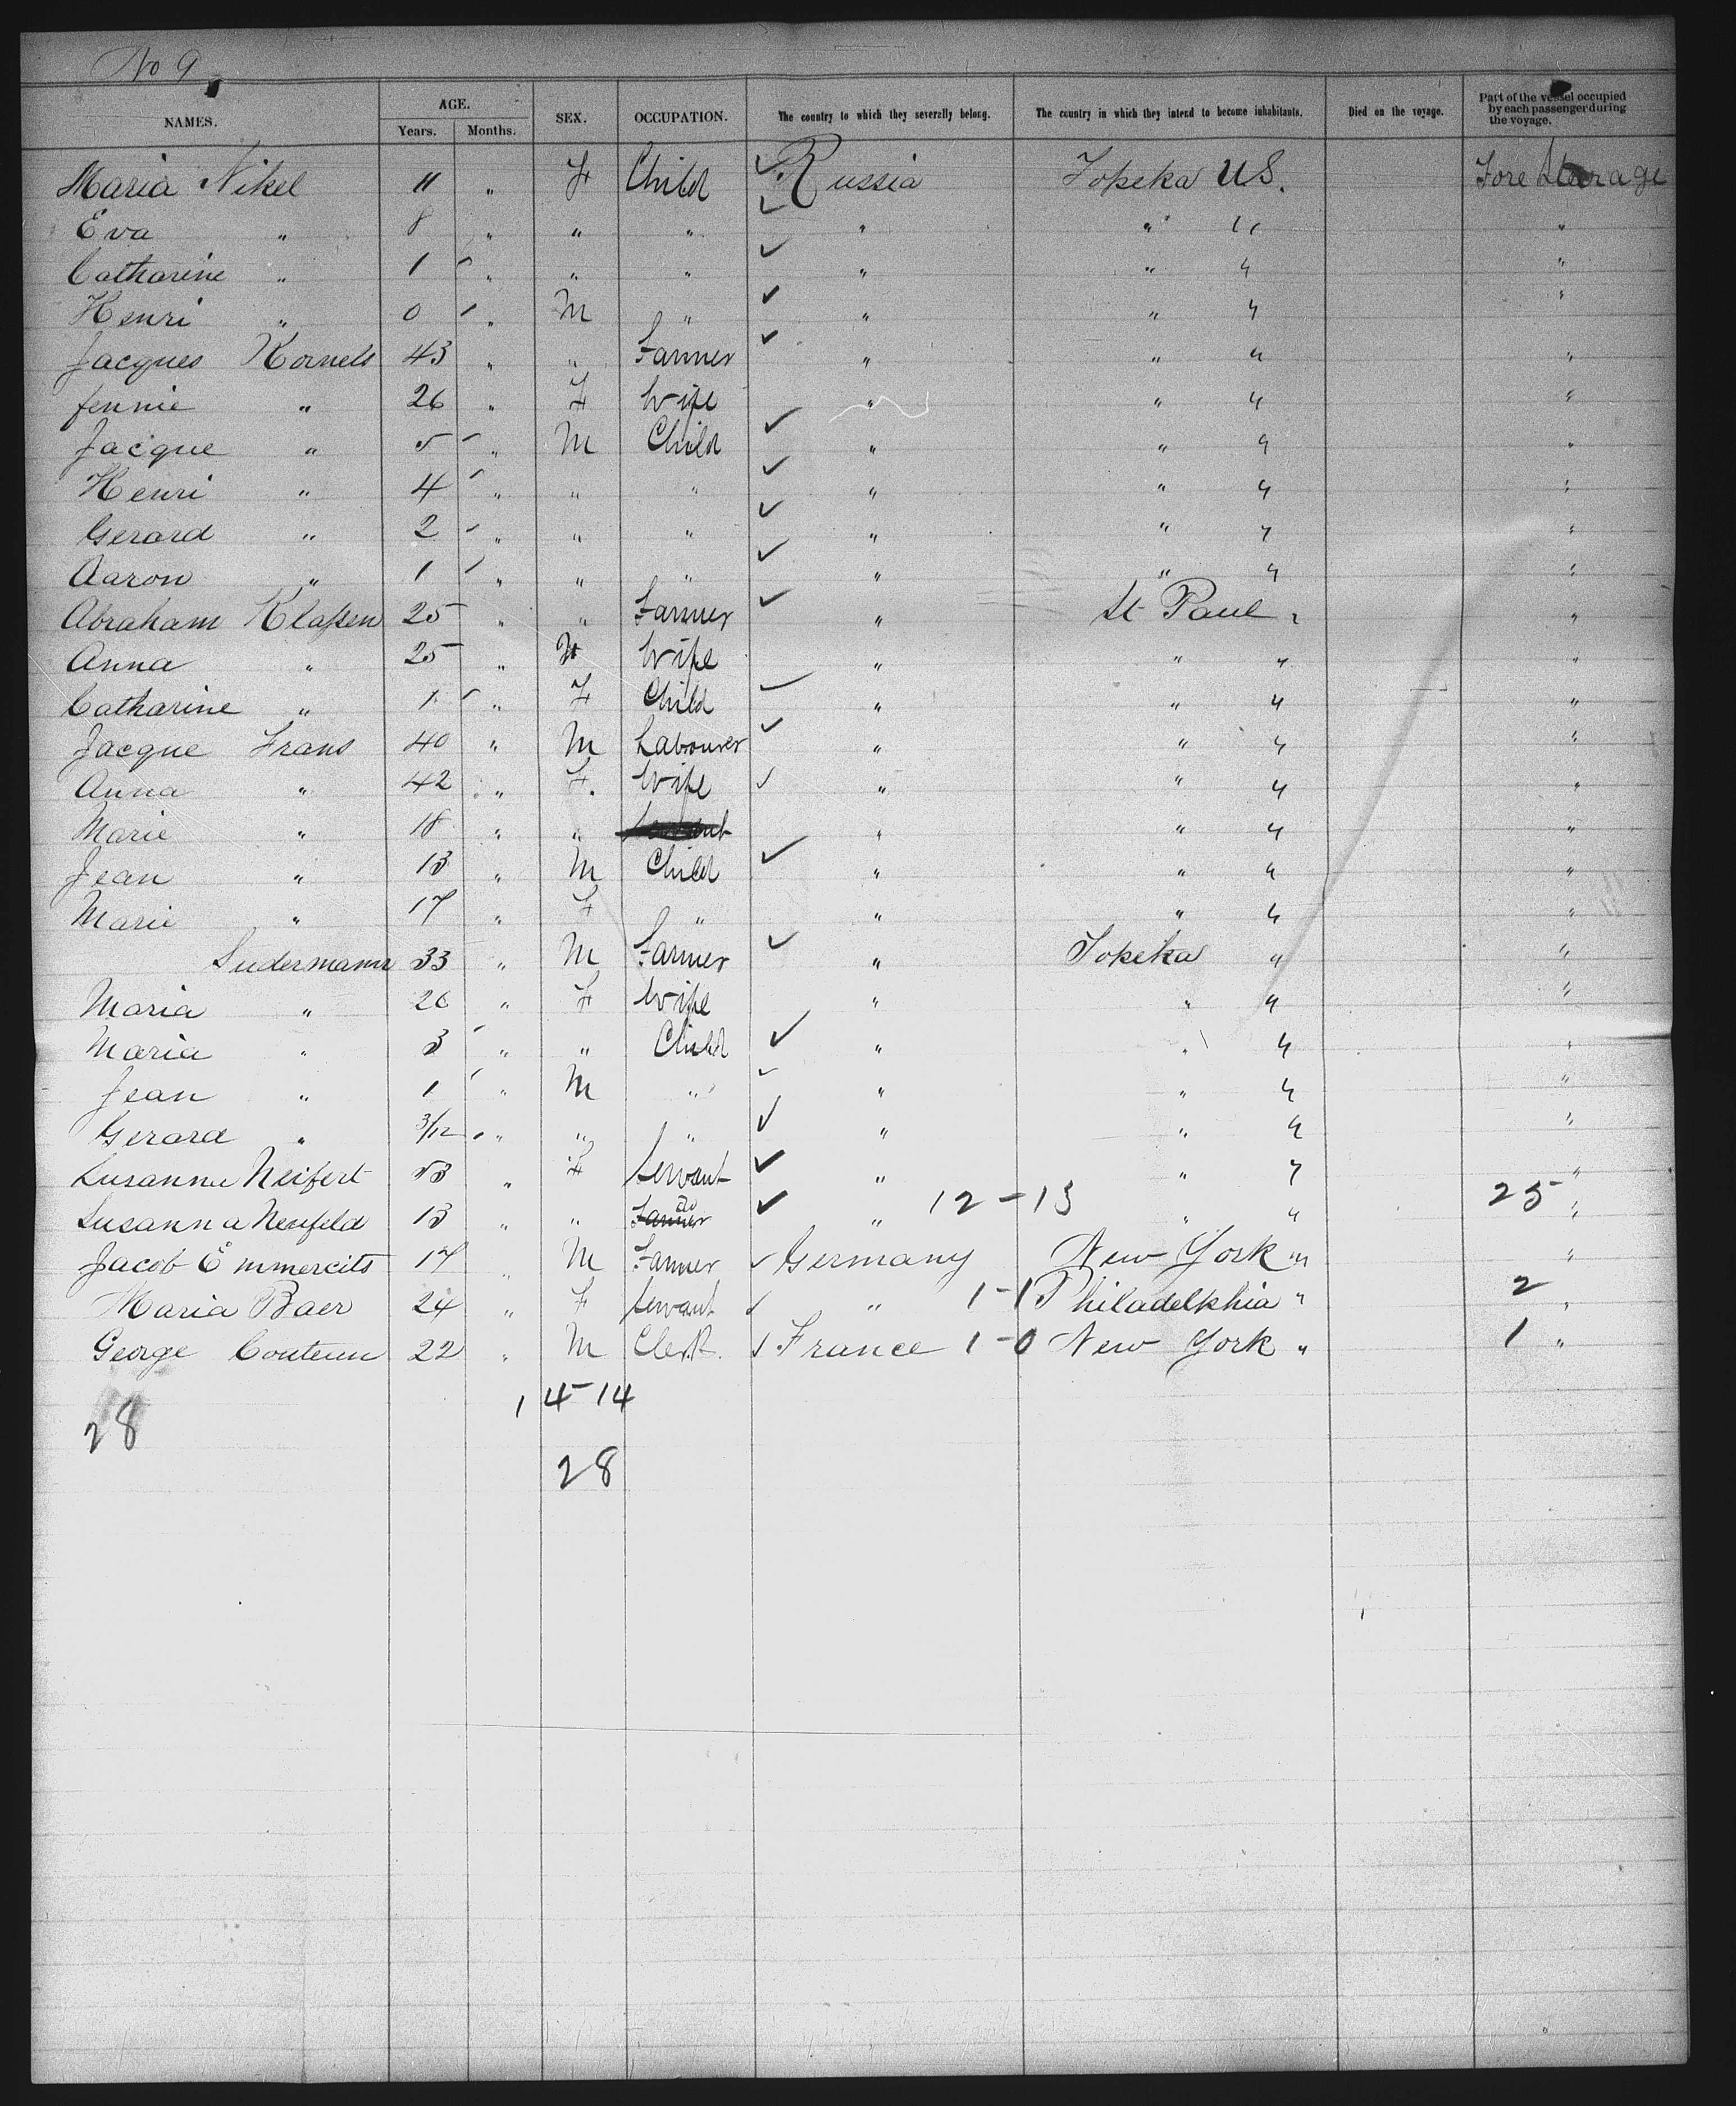 No 9
NAMES. AGE. Years. Months. SEX. OCCUPATION. The country to which they severally belong. The country in which they intend to become inhabitants. Died on the voyage. Part of the vessel occupied by each passenger during the voyage.
Maria Nikel 11 " F Child Russia Topeka U.S. Fore Steerage
Eva " 8 " " " " " " "
Catharine " 1 " " " " " " "
Henri " 0 " M " " " " "
Jacques Kornels 43 " " Farmer " " " "
Jennie " 26 " F Wife " " " "
Jacque " 5 " M Child " " " "
Henri " 4 " " " " " " "
Gerard " 2 " " " " " " "
Aaron " 1 " " " " " " "
Abraham Klaſsen 25 " " Farmer " St Paul " "
Anna " 25 " F Wife " " " "
Catharine " 1 " F Child " " " "
Jacque Frans 40 " M Labourer " " " "
Anna " 42 " F. Wife " " " "
Marie " 18 " " " " " "
Jean " 13 " M Child " " " "
Marie " 17 " F " " " " "
Sudermann 33 " M Farmer " Topeka " "
Maria " 26 " F Wife " " " "
Maria " 3 " " Child " " " "
Jean " 1 " M " " " " "
Gerard " 3/12 " " " " " " "
Susanna Neifert 53 " F Servant " " " "
Susanna Neufeld 13 " " Farmer do " 12-13 " " 25 "
Jacob Emmercits 17 " M Farmer Germany New York " "
Maria Baer 24 " F Servant " 1-1 Philadelkhia " 2 "
George Couteun 22 " M Clerk. France 1-0 New York " 1 "
14-14
28
28